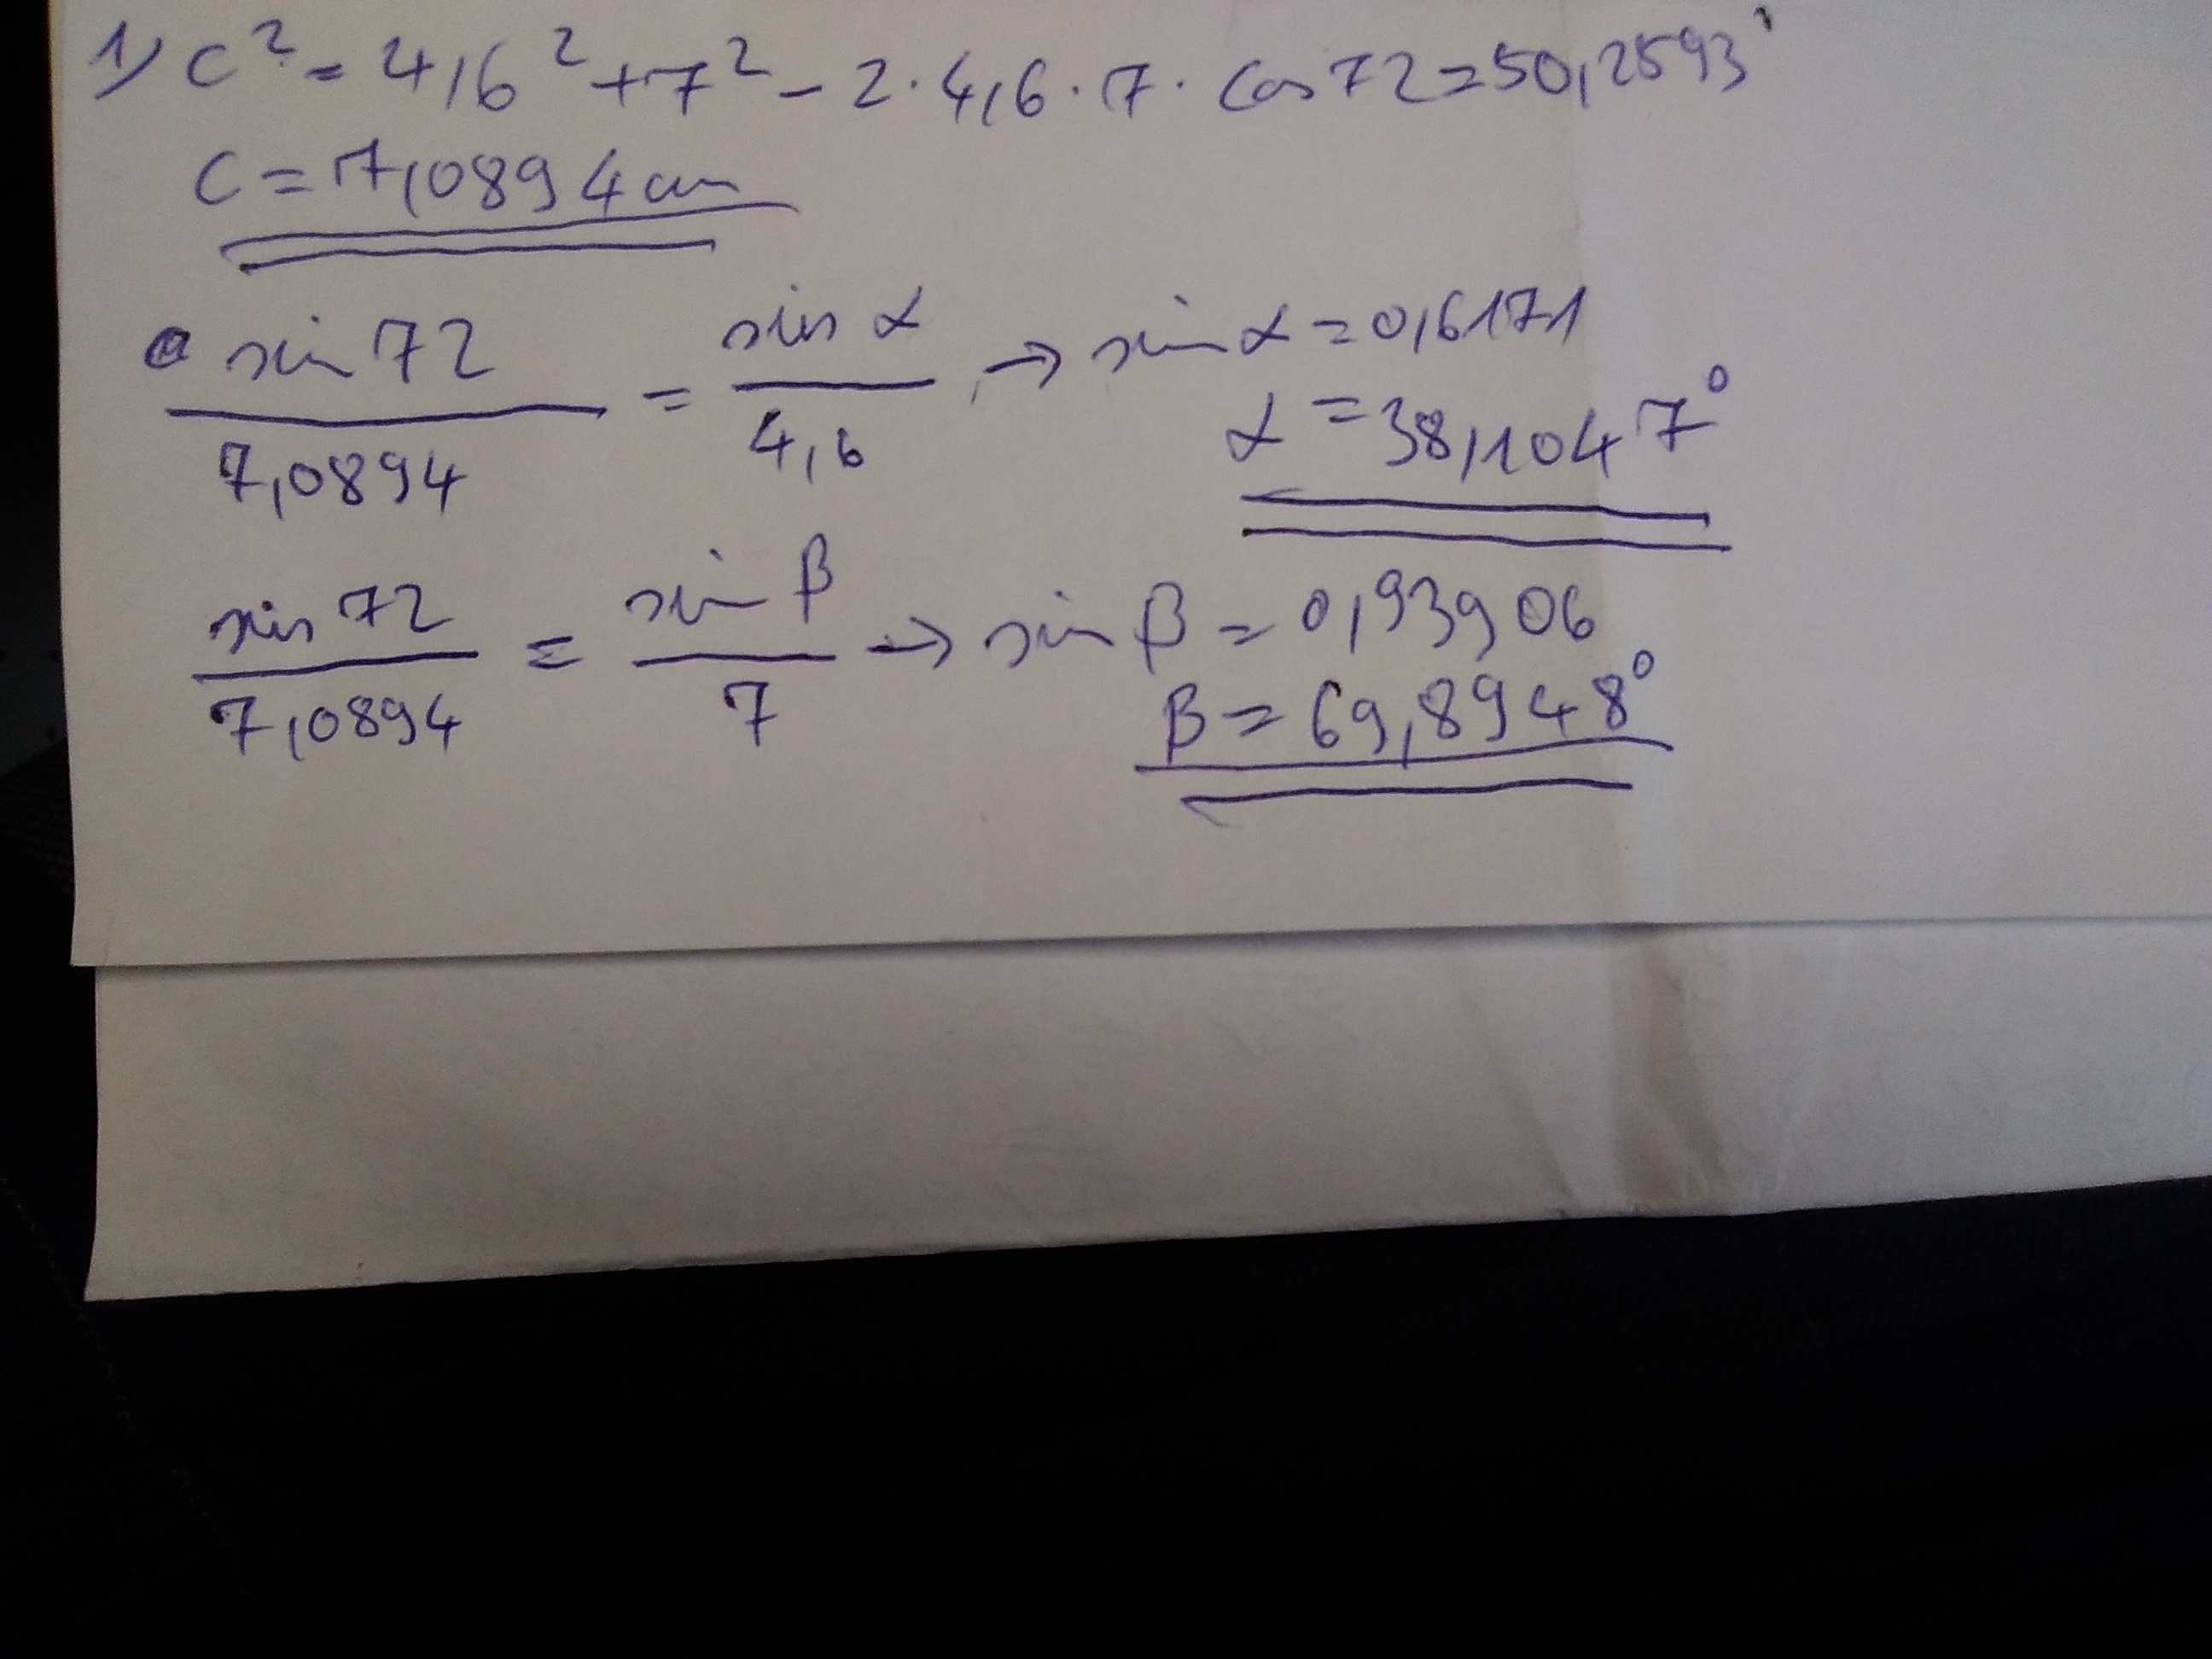 1) c² = 4,6² + 7² - 2 · 4,6 · 7 · cos 72 = 50,2593
c = 7,0894 cm
sin 72 / 7,0894 = sin α / 4,6 → sin α = 0,6171
α = 38,1047°
sin 72 / 7,0894 = sin β / 7 → sin β = 0,93906
β = 69,8948°